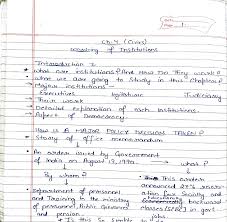 Ch-4 (Civics)
Working of Institutions
Introduction :
What are institutions? And How Do They work?
What we are going to Study in this Chapter?
Major institutions
Executives legislature Judiciary
Their work
Detailed explanation of each institutions
Aspect of Democracy
How is A MAJOR POLICY DECISION TAKEN?
Story of office memorandum
An order issued by Government
of India on August 13, 1990
By whom? what?
This order
announced 27% reser-
Department of personnel vation for Socially and
and Training in the ministry economically backward
of personnel, Public Grievances classes (SEBC) in govt.
and pension